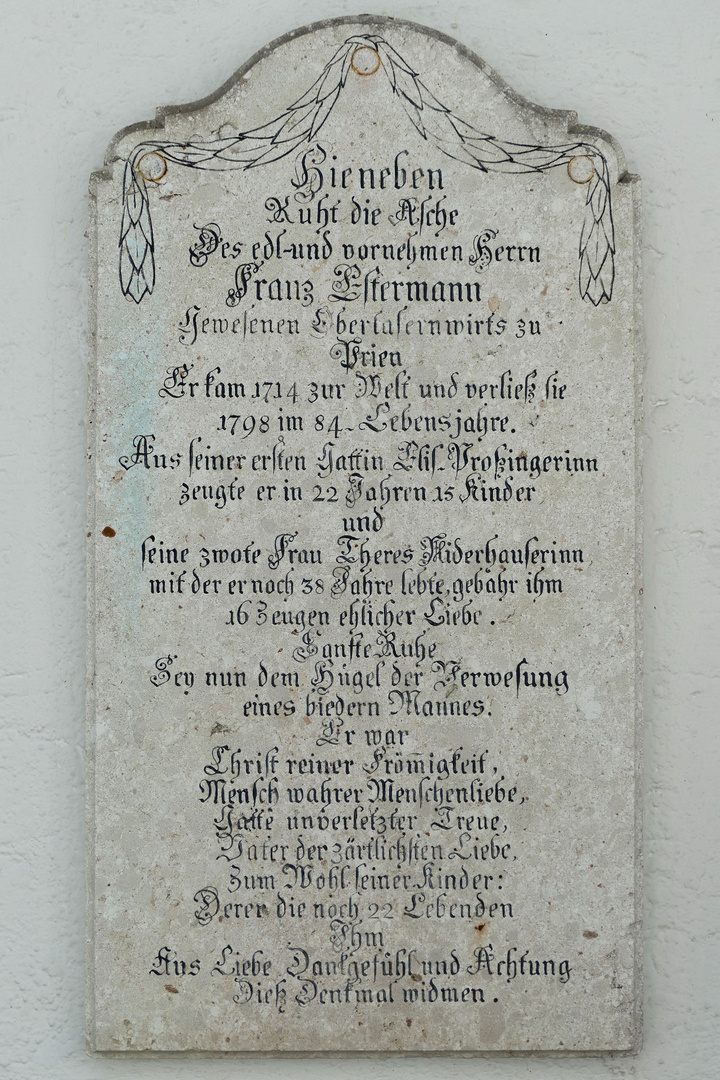 Hieneben
Ruht die Asche
Des edl-und vornehmen Herrn
Franz Estermann
Gewesenen Obertafernwirts zu
Prien
Er kam 1714 zur Welt und verließ sie
1798 im 84. Lebensjahre.
Aus seiner ersten Gattin Elis. Proßingerinn
zeugte er in 22 Jahren 15 Kinder
und
seine zwote Frau Theres Niderhauserinn,
mit der er noch 38 Jahre lebte, gebahr ihm
16 Zeugen ehlicher Liebe.
Sanfte Ruhe
Sey nun dem Hügel der Verwesung
eines biedern Mannes.
Er war
Christ reiner Frömigkeit,
Mensch wahrer Menschenliebe,
Gatte unverletzter Treue,
Vater der zärtlichsten Liebe,
Zum Wohl seiner Kinder:
Derer die noch 22 Lebenden
Ihm
Aus Liebe Dankgefühl und Achtung
Dieß Denkmal widmen.